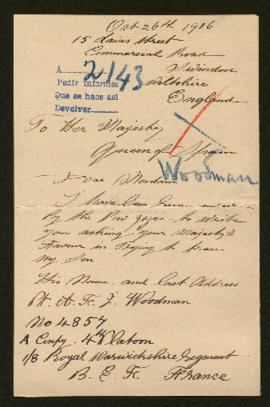 Oct 26th 1916
15 Davis Street
Commercial Road
Swindon
Wiltshire
England
A 2143
Pedir informes
Que se hace asi
Devolver
To Her Majesty
Queen of Spain
Woodman
Dear Madam
I have been
by the to write
you asking your Majesty's
Favour in Trying to trace
my Son
His Name and Last Address
Pt. A. F. J. Woodman
No 4857
A Compy. 4th Platoon
1/8 Royal Warwickshire Regiment
B. E. F. France